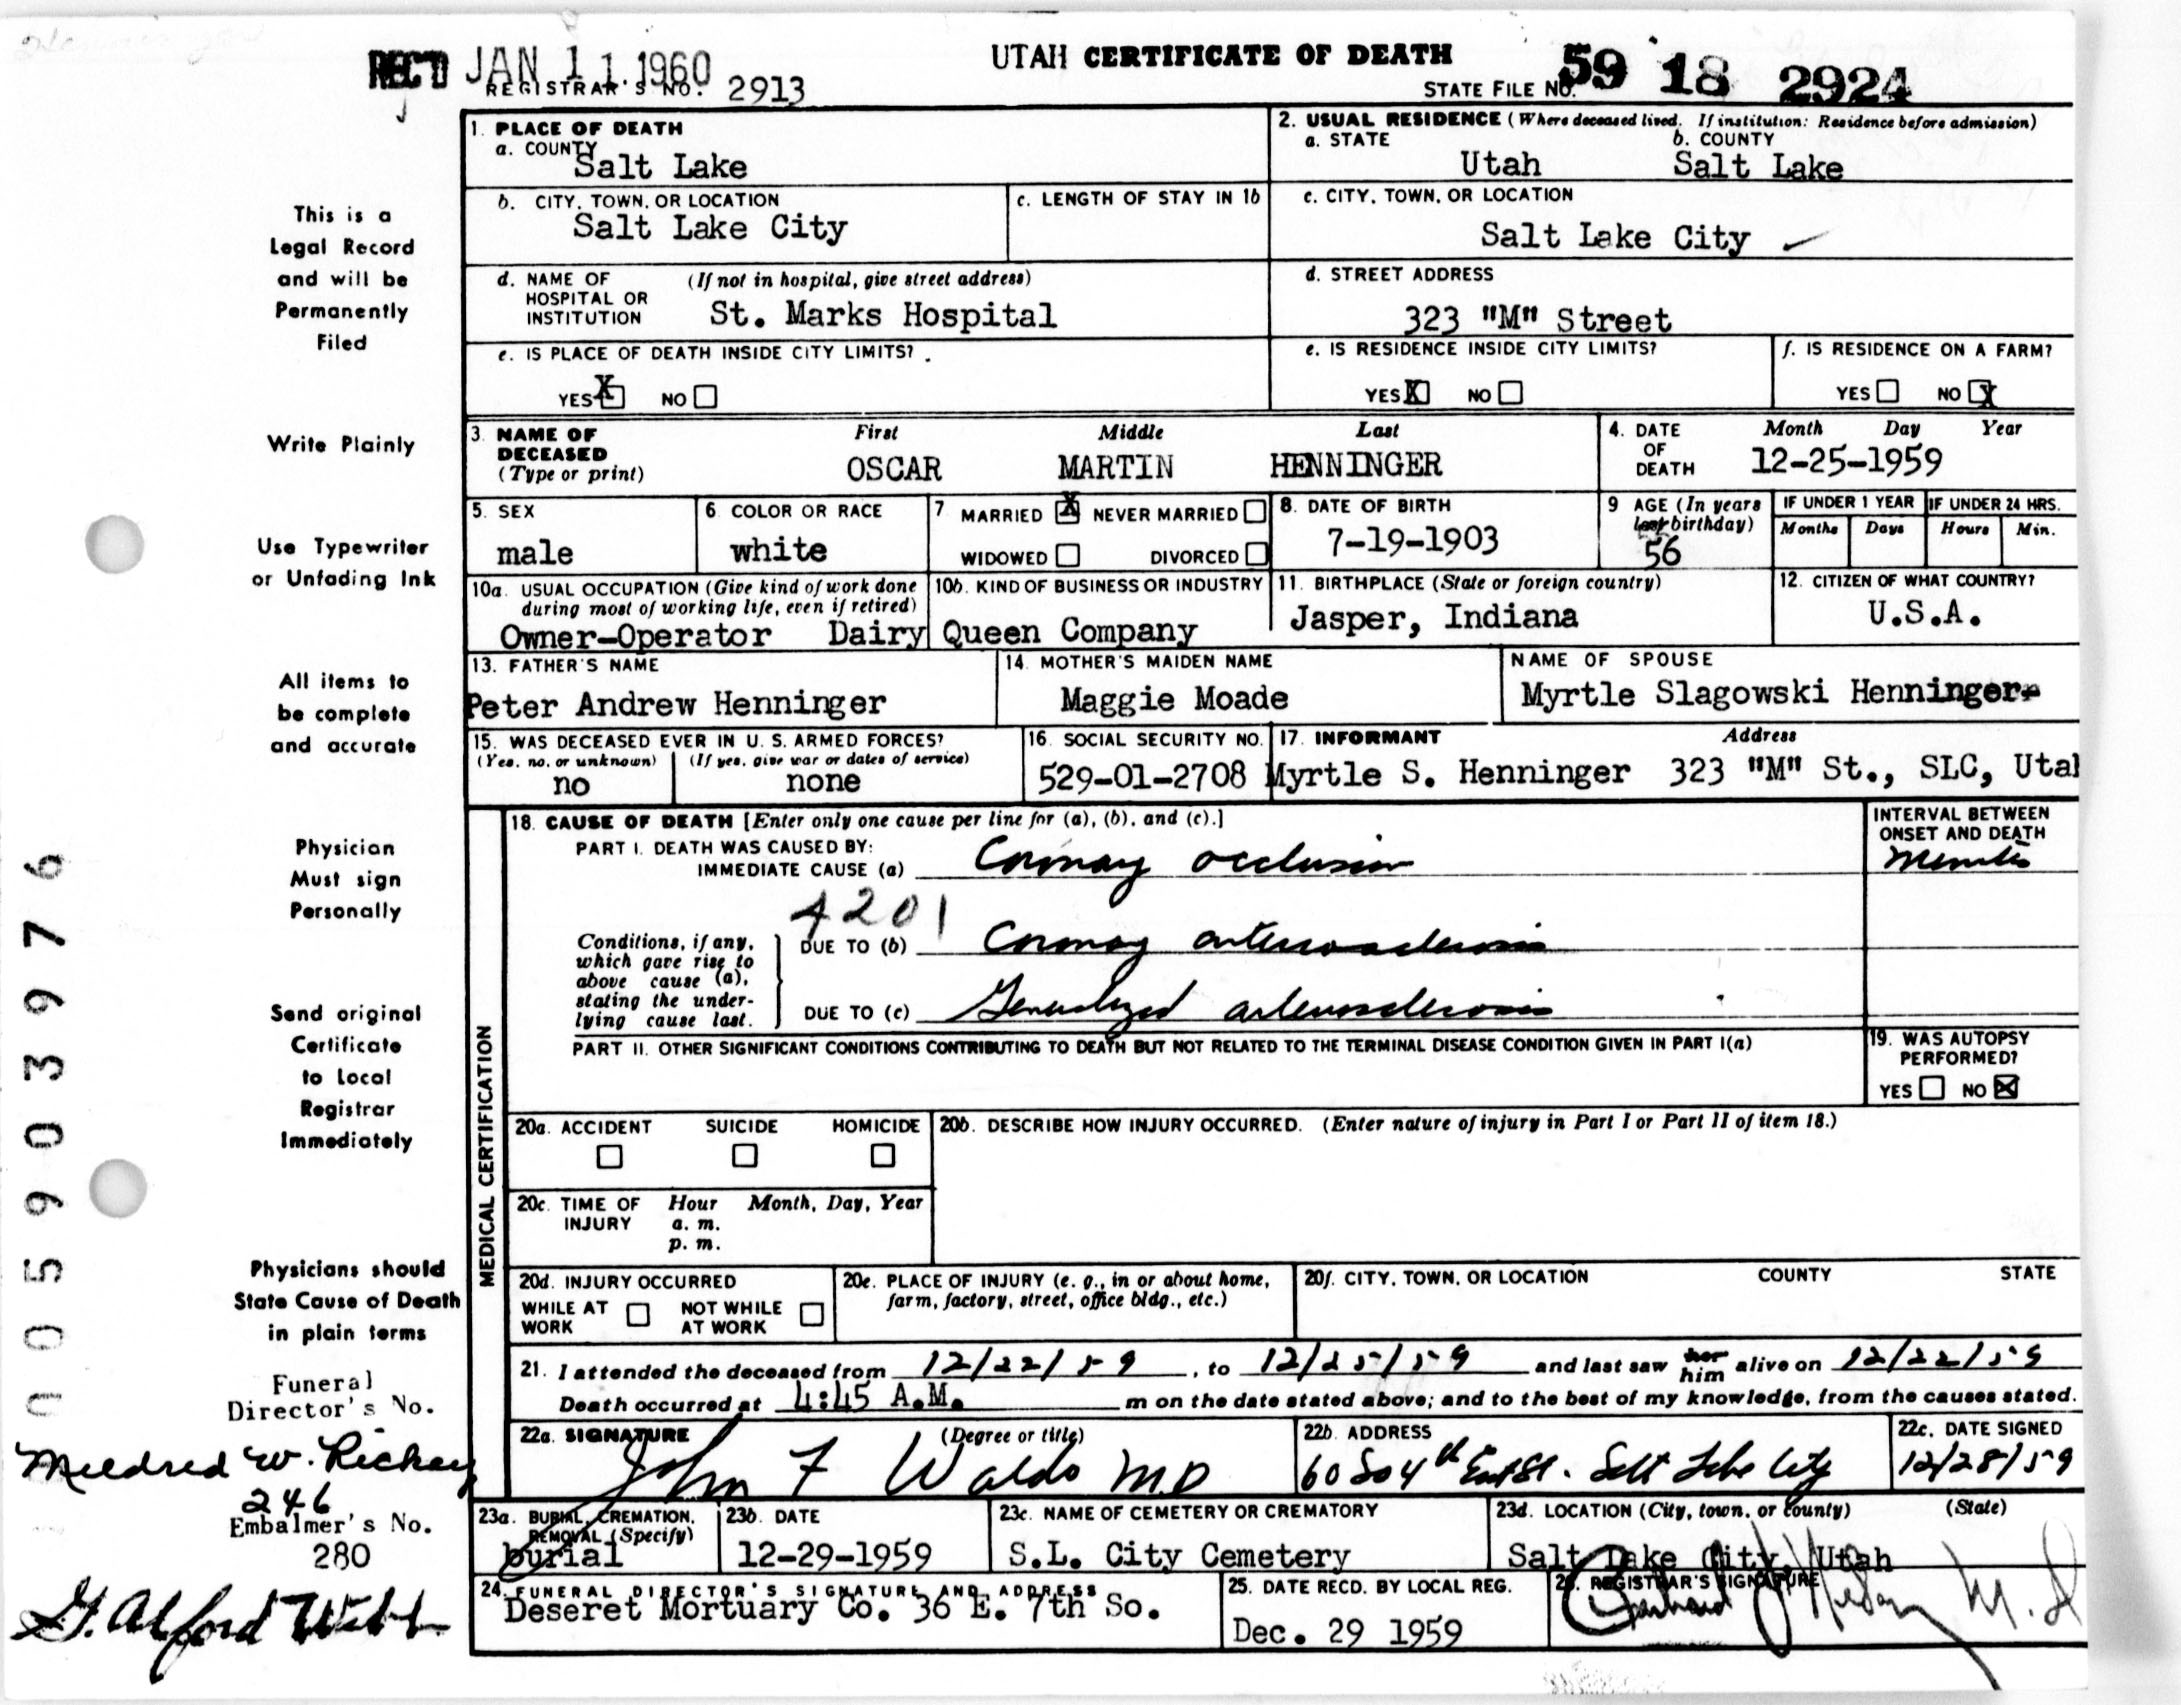 REC'D JAN 11 1960
UTAH CERTIFICATE OF DEATH
REGISTRAR'S NO. 2913
STATE FILE NO. 59 18 2924
This is a
Legal Record
and will be
Permanently
Filed
Write Plainly
Use Typewriter
or Unfading Ink
All items to
be complete
and accurate
Physician
Must sign
Personally
Send original
Certificate
to Local
Registrar
Immediately
Physicians should
State Cause of Death
in plain terms
Funeral
Director's No.
Mildred W. Richey
246
Embalmer's No.
280
G. Alford Webb
005903976
1. PLACE OF DEATH
a. COUNTY
Salt Lake
2. USUAL RESIDENCE (Where deceased lived. If institution: Residence before admission)
a. STATE b. COUNTY
Utah Salt Lake
b. CITY, TOWN, OR LOCATION
Salt Lake City
c. LENGTH OF STAY IN 1b
c. CITY, TOWN, OR LOCATION
Salt Lake City
d. NAME OF HOSPITAL OR INSTITUTION (If not in hospital, give street address)
St. Marks Hospital
d. STREET ADDRESS
323 "M" Street
e. IS PLACE OF DEATH INSIDE CITY LIMITS?
YES X NO
e. IS RESIDENCE INSIDE CITY LIMITS?
YES X NO
f. IS RESIDENCE ON A FARM?
YES NO X
3. NAME OF DECEASED (Type or print)
First Middle Last
OSCAR MARTIN HENNINGER
4. DATE OF DEATH Month Day Year
12-25-1959
5. SEX
male
6. COLOR OR RACE
white
7 MARRIED X NEVER MARRIED
WIDOWED DIVORCED
8. DATE OF BIRTH
7-19-1903
9 AGE (In years last birthday)
56
IF UNDER 1 YEAR IF UNDER 24 HRS.
Months Days Hours Min.
10a. USUAL OCCUPATION (Give kind of work done during most of working life, even if retired)
10b. KIND OF BUSINESS OR INDUSTRY
Owner-Operator Dairy Queen Company
11. BIRTHPLACE (State or foreign country)
Jasper, Indiana
12. CITIZEN OF WHAT COUNTRY?
U.S.A.
13. FATHER'S NAME
Peter Andrew Henninger
14. MOTHER'S MAIDEN NAME
Maggie Moade
NAME OF SPOUSE
Myrtle Slagowski Henninger
15. WAS DECEASED EVER IN U. S. ARMED FORCES?
(Yes, no, or unknown) (If yes, give war or dates of service)
no none
16. SOCIAL SECURITY NO.
529-01-2708
17. INFORMANT Address
Myrtle S. Henninger 323 "M" St., SLC, Utah
MEDICAL CERTIFICATION
18. CAUSE OF DEATH [Enter only one cause per line for (a), (b), and (c).]
INTERVAL BETWEEN ONSET AND DEATH
PART I. DEATH WAS CAUSED BY:
IMMEDIATE CAUSE (a) Coronary occlusion Minutes
4201
Conditions, if any, which gave rise to above cause (a), stating the underlying cause last.
DUE TO (b) Coronary arteriosclerosis
DUE TO (c) Generalized arteriosclerosis
PART II. OTHER SIGNIFICANT CONDITIONS CONTRIBUTING TO DEATH BUT NOT RELATED TO THE TERMINAL DISEASE CONDITION GIVEN IN PART I(a)
19. WAS AUTOPSY PERFORMED?
YES NO X
20a. ACCIDENT SUICIDE HOMICIDE
20b. DESCRIBE HOW INJURY OCCURRED. (Enter nature of injury in Part I or Part II of item 18.)
20c. TIME OF INJURY Hour Month, Day, Year
a. m.
p. m.
20d. INJURY OCCURRED
WHILE AT WORK NOT WHILE AT WORK
20e. PLACE OF INJURY (e. g., in or about home, farm, factory, street, office bldg., etc.)
20f. CITY, TOWN, OR LOCATION COUNTY STATE
21. I attended the deceased from 12/22/59, to 12/25/59 and last saw her him alive on 12/22/59
Death occurred at 4:45 A.M. m on the date stated above; and to the best of my knowledge, from the causes stated.
22a. SIGNATURE (Degree or title)
John F Waldo M.D
22b. ADDRESS
60 So 4th East St. Salt Lake City
22c. DATE SIGNED
12/28/59
23a. BURIAL, CREMATION, REMOVAL (Specify)
burial
23b. DATE
12-29-1959
23c. NAME OF CEMETERY OR CREMATORY
S.L. City Cemetery
23d. LOCATION (City, town, or county) (State)
Salt Lake City, Utah
24. FUNERAL DIRECTOR'S SIGNATURE AND ADDRESS
Deseret Mortuary Co. 36 E. 7th So.
25. DATE RECD. BY LOCAL REG.
Dec. 29 1959
26. REGISTRAR'S SIGNATURE
M.D.